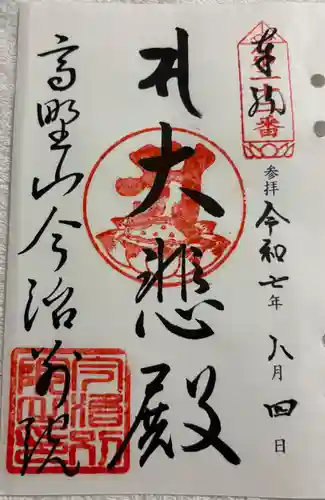 番
参拝 令和七年 八月四日
大悲殿
高野山今治別院